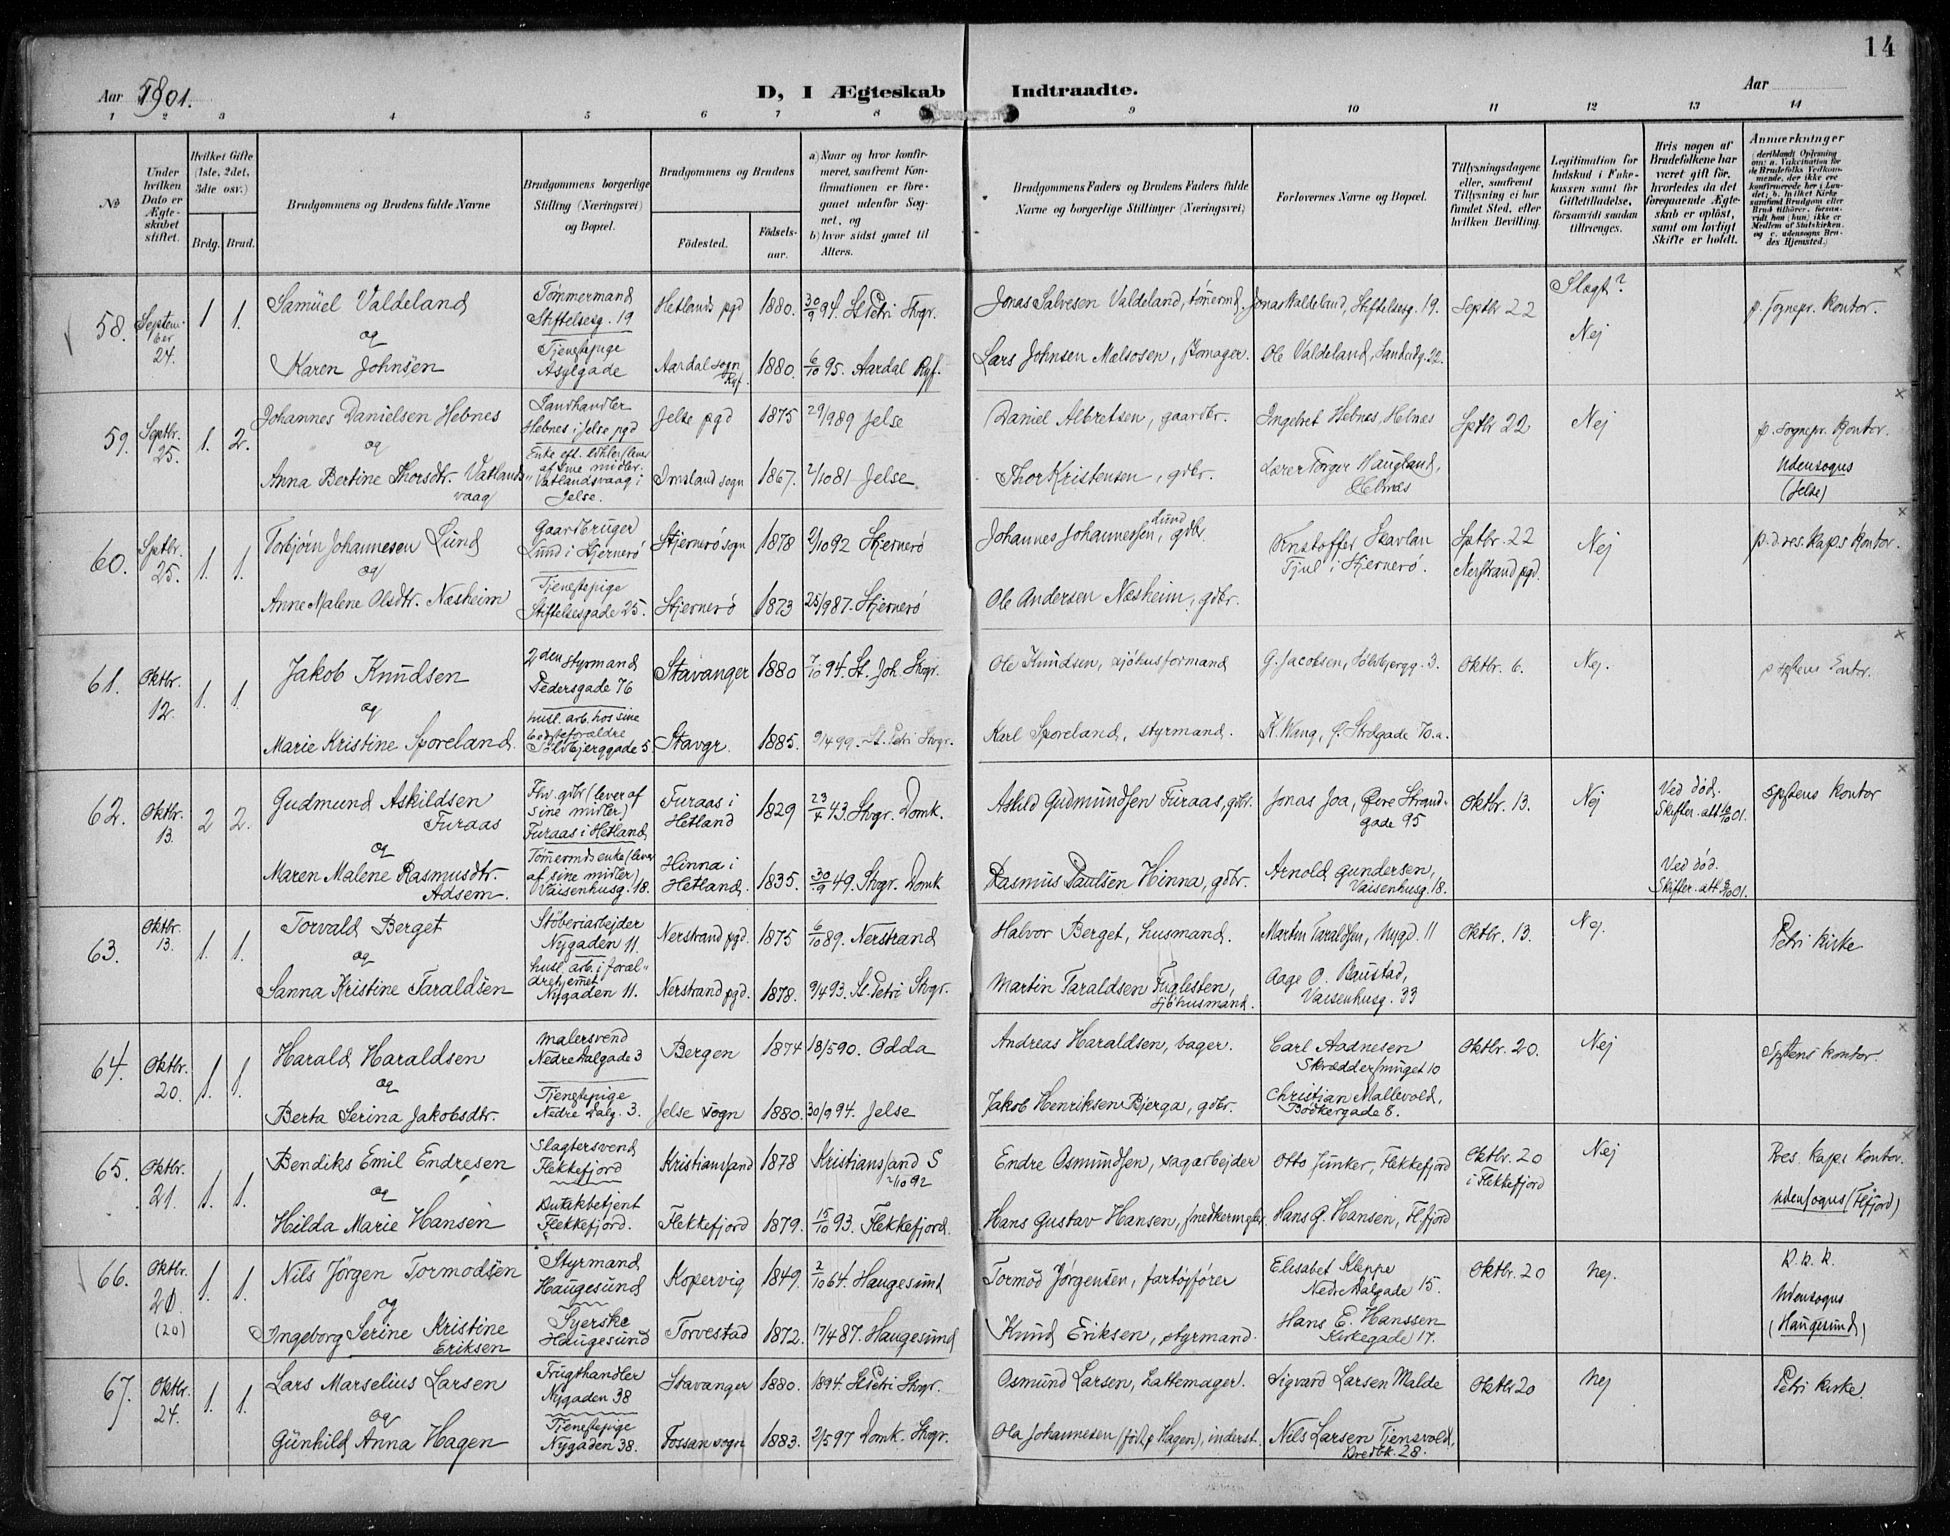 14
Aar 1901.
D, I Ægteskab Indtraadte.
Aar
1 2 3 4 5 6 7 8 9 10 11 12 13 14
No
Under hvilken Dato er Ægteskabet stiftet.
Hvilket Gifte (1ste, 2det, 3die osv.)
Brdg. Brud.
Brudgommens og Brudens fulde Navne
Brudgommens borgerlige Stilling (Næringsvei) og Bopæl.
Brudgommens og Brudens
Fødested. Fødselsaar.
a) Naar og hvor konfirmeret, saafremt Konfirmationen er foregaaet udenfor Sognet, og
b) hvor sidst gaaet til Alters.
Brudgommens Faders og Brudens Faders fulde Navne og borgerlige Stillinger (Næringsvei)
Forlovernes Navne og Bopæl.
Tillysningsdagene eller, saafremt Tillysning ei har fundet Sted, efter hvilken Bevilling.
Legitimation for Indskud i Enkekassen samt for Giftetilladelse, forsaavidt saadan tiltrænges.
Hvis nogen af Brudefolkene har været gift før, hvorledes da det foregaaende Ægteskab er opløst, samt om lovligt Skifte er holdt.
Anmærkninger
58. Septem-ber 24. 1 1. Samuel Valdeland Tømmermand Stiftelsesg. 19 Hetlands pgd 1880. 30/9 94. St. Petri Stvgr. Jonas Salvesen Valdeland, tømermd. Jonas Valdeland, Stiftelsesg. 19. Septbr 22 Slegt? Nej p. Sognepr. Kontor.
og
Karen Johnsen Tjenestepige Asylgade Aardal sogn Ryf. 1880. 6/10 95. Aardal Ryf. Lars Johnsen Mælsosen, skomager. Ole Valdeland, Sandeidg. 22.
59. Septbr. 25. 1. 2. Johannes Danielsen Hebnes Landhandler Hebnes i Jelse pgd Jelse pgd 1875 29/9 89 Jelse Daniel Albretsen, gaardbr. Ingebret Hebnes, Hebnes Sptbr 22 Nej p. Sognepr. Kontor.
og
Anna Bertine Thorsdtr. Vatlandsvaag Enke eft. (lever af sine midler. Vatlandsvaag i Jelse. Imsland sogn 1867. 2/10 81 Jelse Thor Kristensen, gdbr. Lærer Torger Haugland, Hebnæs Udensogns (Jelse)
60. Sptbr. 25. 1. 1. Torbjørn Johannesen Lund Gaardbruger Lund i Stjernerø Stjernerø sogn 1878 2/10 92 Stjernerø Johannes Johannessen Lund, gdbr. Kristoffer Skavlan Tjul i Stjernerø. Sptbr. 22 Nerstrand pgd. Nej p. d. res. Kap.s Kontor.
og
Anne Malene Olsdtr. Næsheim Tjenestepige Stiftelsesgade 25. Stjernerø 1873 25/9 87. Stjernerø Ole Andersen Næsheim, gdbr.
61. Oktbr. 12. 1. 1. Jakob Knudsen 2den styrmand Pedersgade 76 Stavanger 1880 7/10 94. St. Joh. Stvgr. Ole Knudsen, sjøhusformand G. Jacobsen, Sølvbjergg. 3. Oktbr. 6. Nej. p. sptens Kontor.
og
Marie Kristine Sporeland. husl. arb. hos sine bedsteforældre Sølvbjerggade 5 Stavgr. 1885. 9/4 99. St. Petri Stvgr. Karl Sporeland, styrmand. K. Waag, Ø. Strdgade 70. a.
62. Oktbr. 13. 2 2. Gudmund Askildsen Furaas Fhv. gdbr. (lever af sine midler) Furaas i Hetland Furaas i Hetland 1829 23/4 43. Stvgr. Domk. Askild Gudmundsen Furaas, gdbr. Jonas Joa, Øvre Strandgade 95 Oktbr. 13. Nej Ved død. Skifter. att. sptens Kontor
og
Maren Malene Rasmusdtr. Adsem. Tømermdsenke (lever af sine midler) Vaisenhusg. 18. Hinna i Hetland. 1835. 30/9 49. Stvgr. Domk Rasmus Paulsen Hinna, gdbr. Arnold Gundersen, Vaisenhusg. 18. Ved død. Skifter. att.
63. Oktbr. 13. 1. 1. Torvald Berget Støberiarbejder Nygaden 11. Nerstrand pgd. 1875 6/10 89. Nerstrand Halvor Berget, husmand. Martin Taraldsen, Nygd. 11 Oktbr. 13. Nej. Petri Kirke
og
Sanna Kristine Taraldsen husl. arb. i forældrehjemmet Nygaden 11. Nerstrand pgd. 1878. 9/4 93. St. Petri Stvgr. Martin Taraldsen Fuglesten, sjøhusmand. Aage O. Baustad, Vaisenhusg. 33
64. Oktbr. 20. 1. 1. Harald Haraldsen Malersvend Nedre Dalgade 3 Bergen 1874 18/5 90. Odda Andreas Haraldsen, bager. Carl Aadnesen Skræddersmuget 10 Oktbr. 20. Nej Sptens Kontor.
og
Berta Serina Jakobsdtr. Tjenestepige Nedre Dalg. 3. Jelse sogn 1880. 30/9 94. Jelse Jakob Henriksen Bjerga, gdbr. Christian Mallevold, Bødkergade 8.
65. Oktbr. 21. 1. 1. Bendiks Emil Endresen Slagtersvend Flekkefjord Kristianssand 1878 Kristianssand S 2/10 92 Endre Osmundsen, sagarbejder Otto Junker, Flekkefjord Oktbr. 20 i Flekkefjord Nej Res. Kaps Kontor.
og
Hilda Marie Hansen Butikbetjent Flekkefjord. Flekkefjord 1879. 15/10 93. Flekkefjord. Hans Gustav Hansen, snedkermester Hans G. Hansen, Fl.fjord Udensogns (Flfjord)
66. Oktbr. 21. (20) 1. 1. Nils Jörgen Tormodsen Styrmand Haugesund Kopervig 1849. 2/10 64. Haugesund Tormod Jørgensen, fartøjfører Elisabet Kleppe Nedre Dalgade 15. Oktbr. 20 Nej. R. K. K.
og
Ingeborg Serine Kristine Eriksen Syerske Haugesund Torvestad 1872. 17/4 87. Haugesund Knud Eriksen, styrmand. Hans E. Hanssen Kirkegade 17. Udensogns (Haugesund)
67. Oktbr. 24. 1. 1. Lars Marselius Larsen Frugthandler Nygaden 38 Stavanger 1880. 1894. St. Petri Stvgr. Osmund Larsen, hattemager. Sigvard Larsen Malde Oktbr 20 Nej Petri Kirke.
og
Gunhild Anna Hagen Tjenestepige Nygaden 38. Fossan sogn 1883. 2/5 97 Domk. Stvgr. Ola Johannesen (född på Hagen), inderst. Nils Larsen Tjensvold, Bredbk. 28.